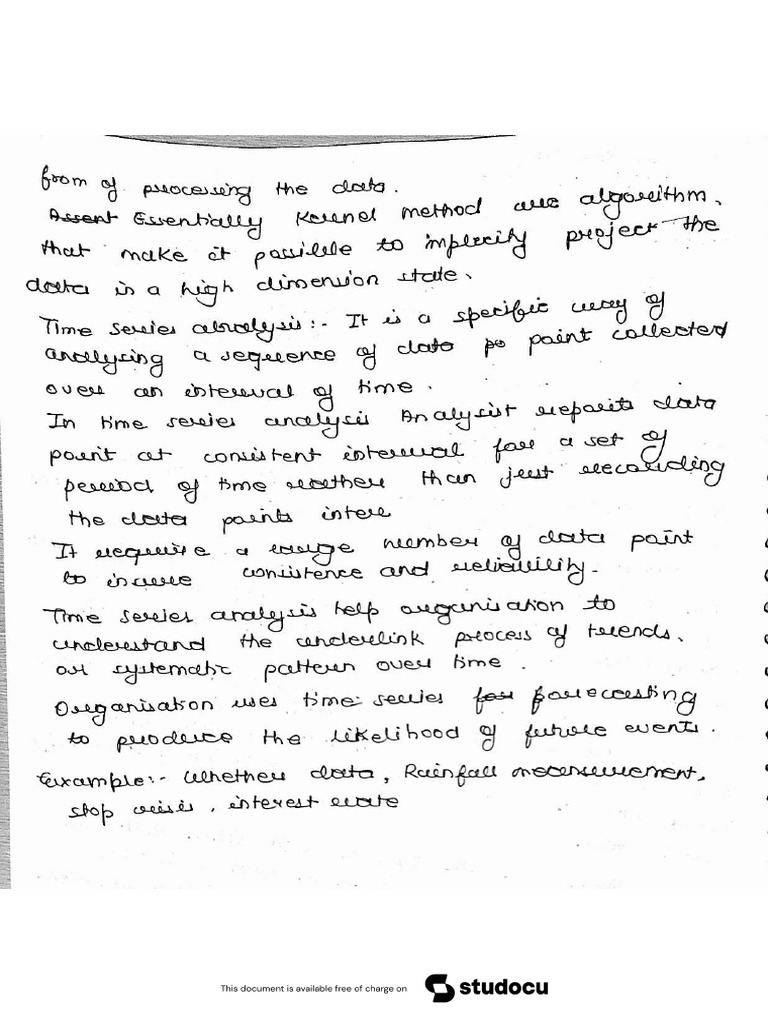 from of processing the data.
Assent Essentially Kernel method are algorithm.
that make it possible to implicity project the
data in a high dimension state.
Time series abnalysis:- It is a specific way of
analysing a sequence of data po point collected
over an interval of time.
In time series analysis Analysist reports data
point at consistent interval for a set of
period of time rather than just recording
the data points inter
It require a large number of data point
to insure consistence and reliability.
Time series analysis help organisation to
understand the underlink process of trends.
or systematic pattern over time.
Organisation uses time series for forecasting
to produce the likelihood of future events.
Example:- Whether data, Rainfall measurement,
stop interest rate
This document is available free of charge on studocu